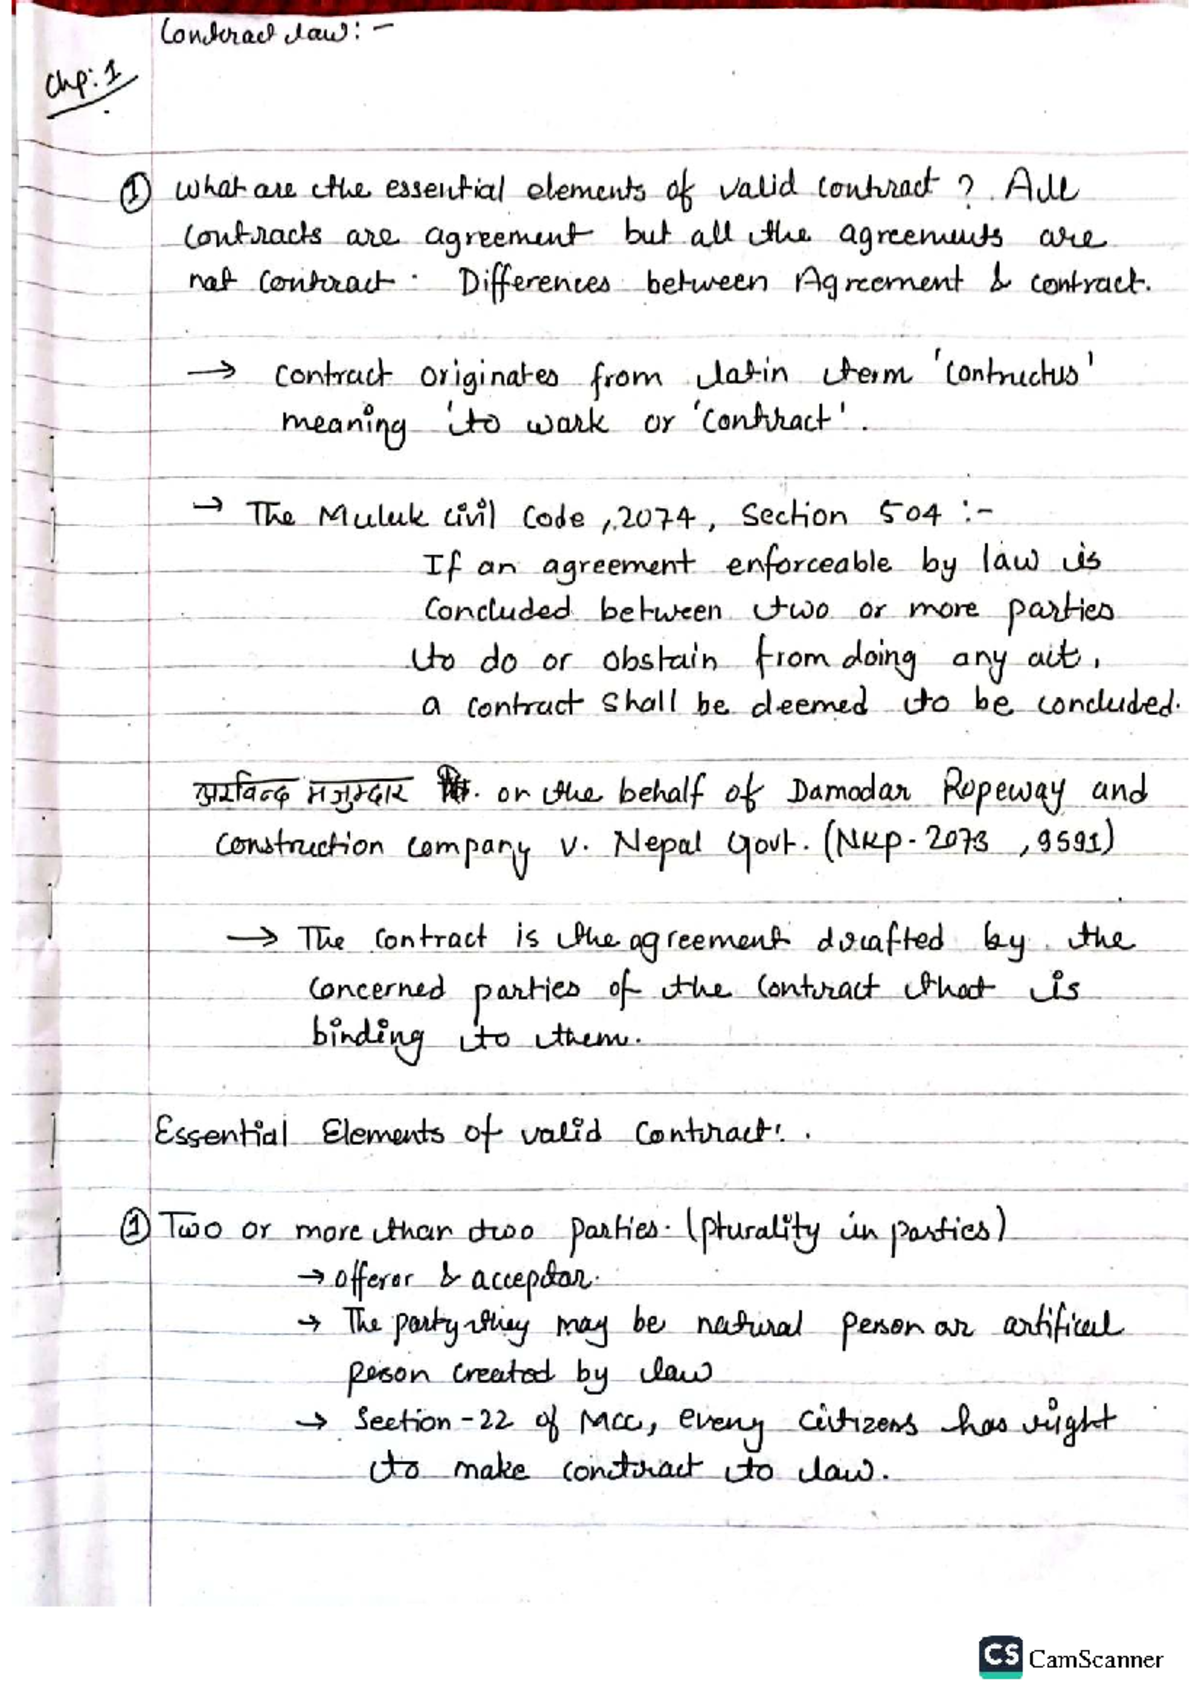 Contract law: -
Chp: 1
① What are the essential elements of valid contract ? All
contracts are agreement but all the agreements are
not contract. Differences between Agreement & contract.
→ contract originates from latin term 'contructus'
meaning 'to work or 'contract'.
→ The Muluk Civil Code, 2074, Section 504 :-
If an agreement enforceable by law is
concluded between two or more parties
to do or obstain from doing any act,
a contract shall be deemed to be concluded.
अरविन्द मजुम्दार on the behalf of Damodar Ropeway and
construction company v. Nepal Govt. (NKP-2073, 9591)
→ The contract is the agreement drafted by the
concerned parties of the contract that is
binding to them.
Essential Elements of valid Contract:.
① Two or more than two parties. (plurality in parties)
→ offeror & acceptor.
→ The party they may be natural person or artifical
person created by law
→ Section-22 of MCC, every citizens has right
to make contract to law.
CS CamScanner